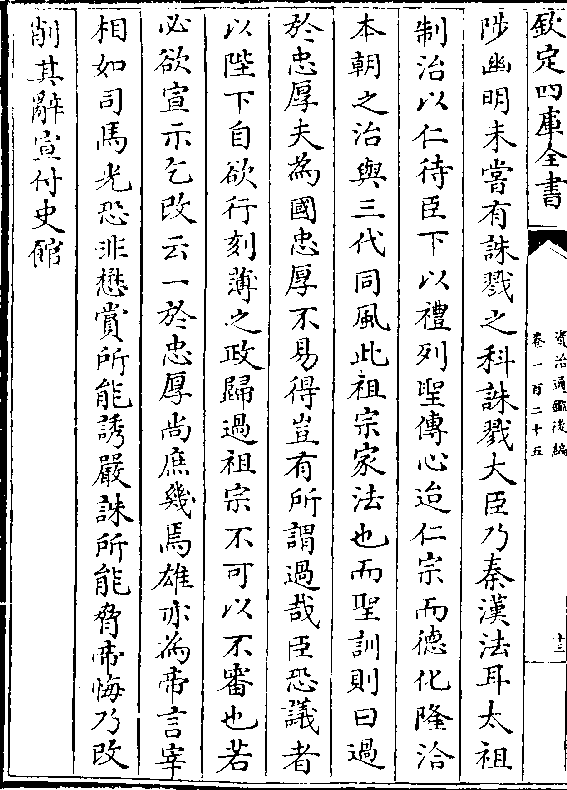 欽定四庫全書
資治通鑑後編
卷一百二十五
十三
陟幽明未嘗有誅戮之科誅戮大臣乃秦漢法耳太祖
制治以仁待臣下以禮列聖傳心迨仁宗而德化隆洽
本朝之治與三代同風此祖宗家法也而聖訓則曰過
於忠厚夫為國忠厚不易得豈有所謂過哉臣恐議者
以陛下自欲行刻薄之政歸過祖宗不可以不審也若
必欲宣示乞改云一於忠厚尚庶幾焉雄亦為帝言宰
相如司馬光恐非懋賞所能誘嚴誅所能脅帝悔乃改
削其辭宣付史館